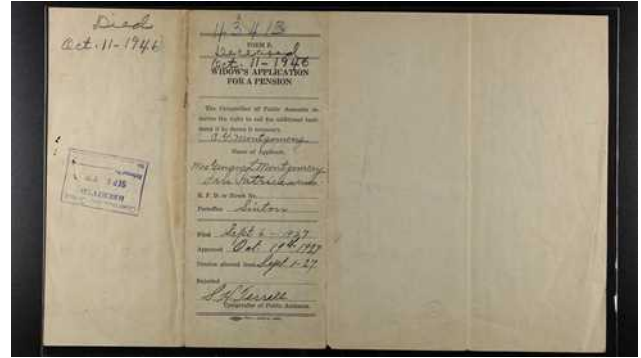 Died
Oct. 11-1946
43413
FORM B.
Deceased
Oct. 11-1946
WIDOW'S APPLICATION
FOR A PENSION
The Comptroller of Public Accounts re-
serves the right to call for additional testi-
mony if he deems it necessary.
Montgomery
Name of Applicant.
Montgomery
San Patricio
R. F. D. or Street No.
Postoffice Sinton
Filed Sept 6-1927
Approved Oct. 19th 1927
Pension allowed from Sept. 1-27
Rejected
S. H. Terrell
Comptroller of Public Accounts.
SEP 1